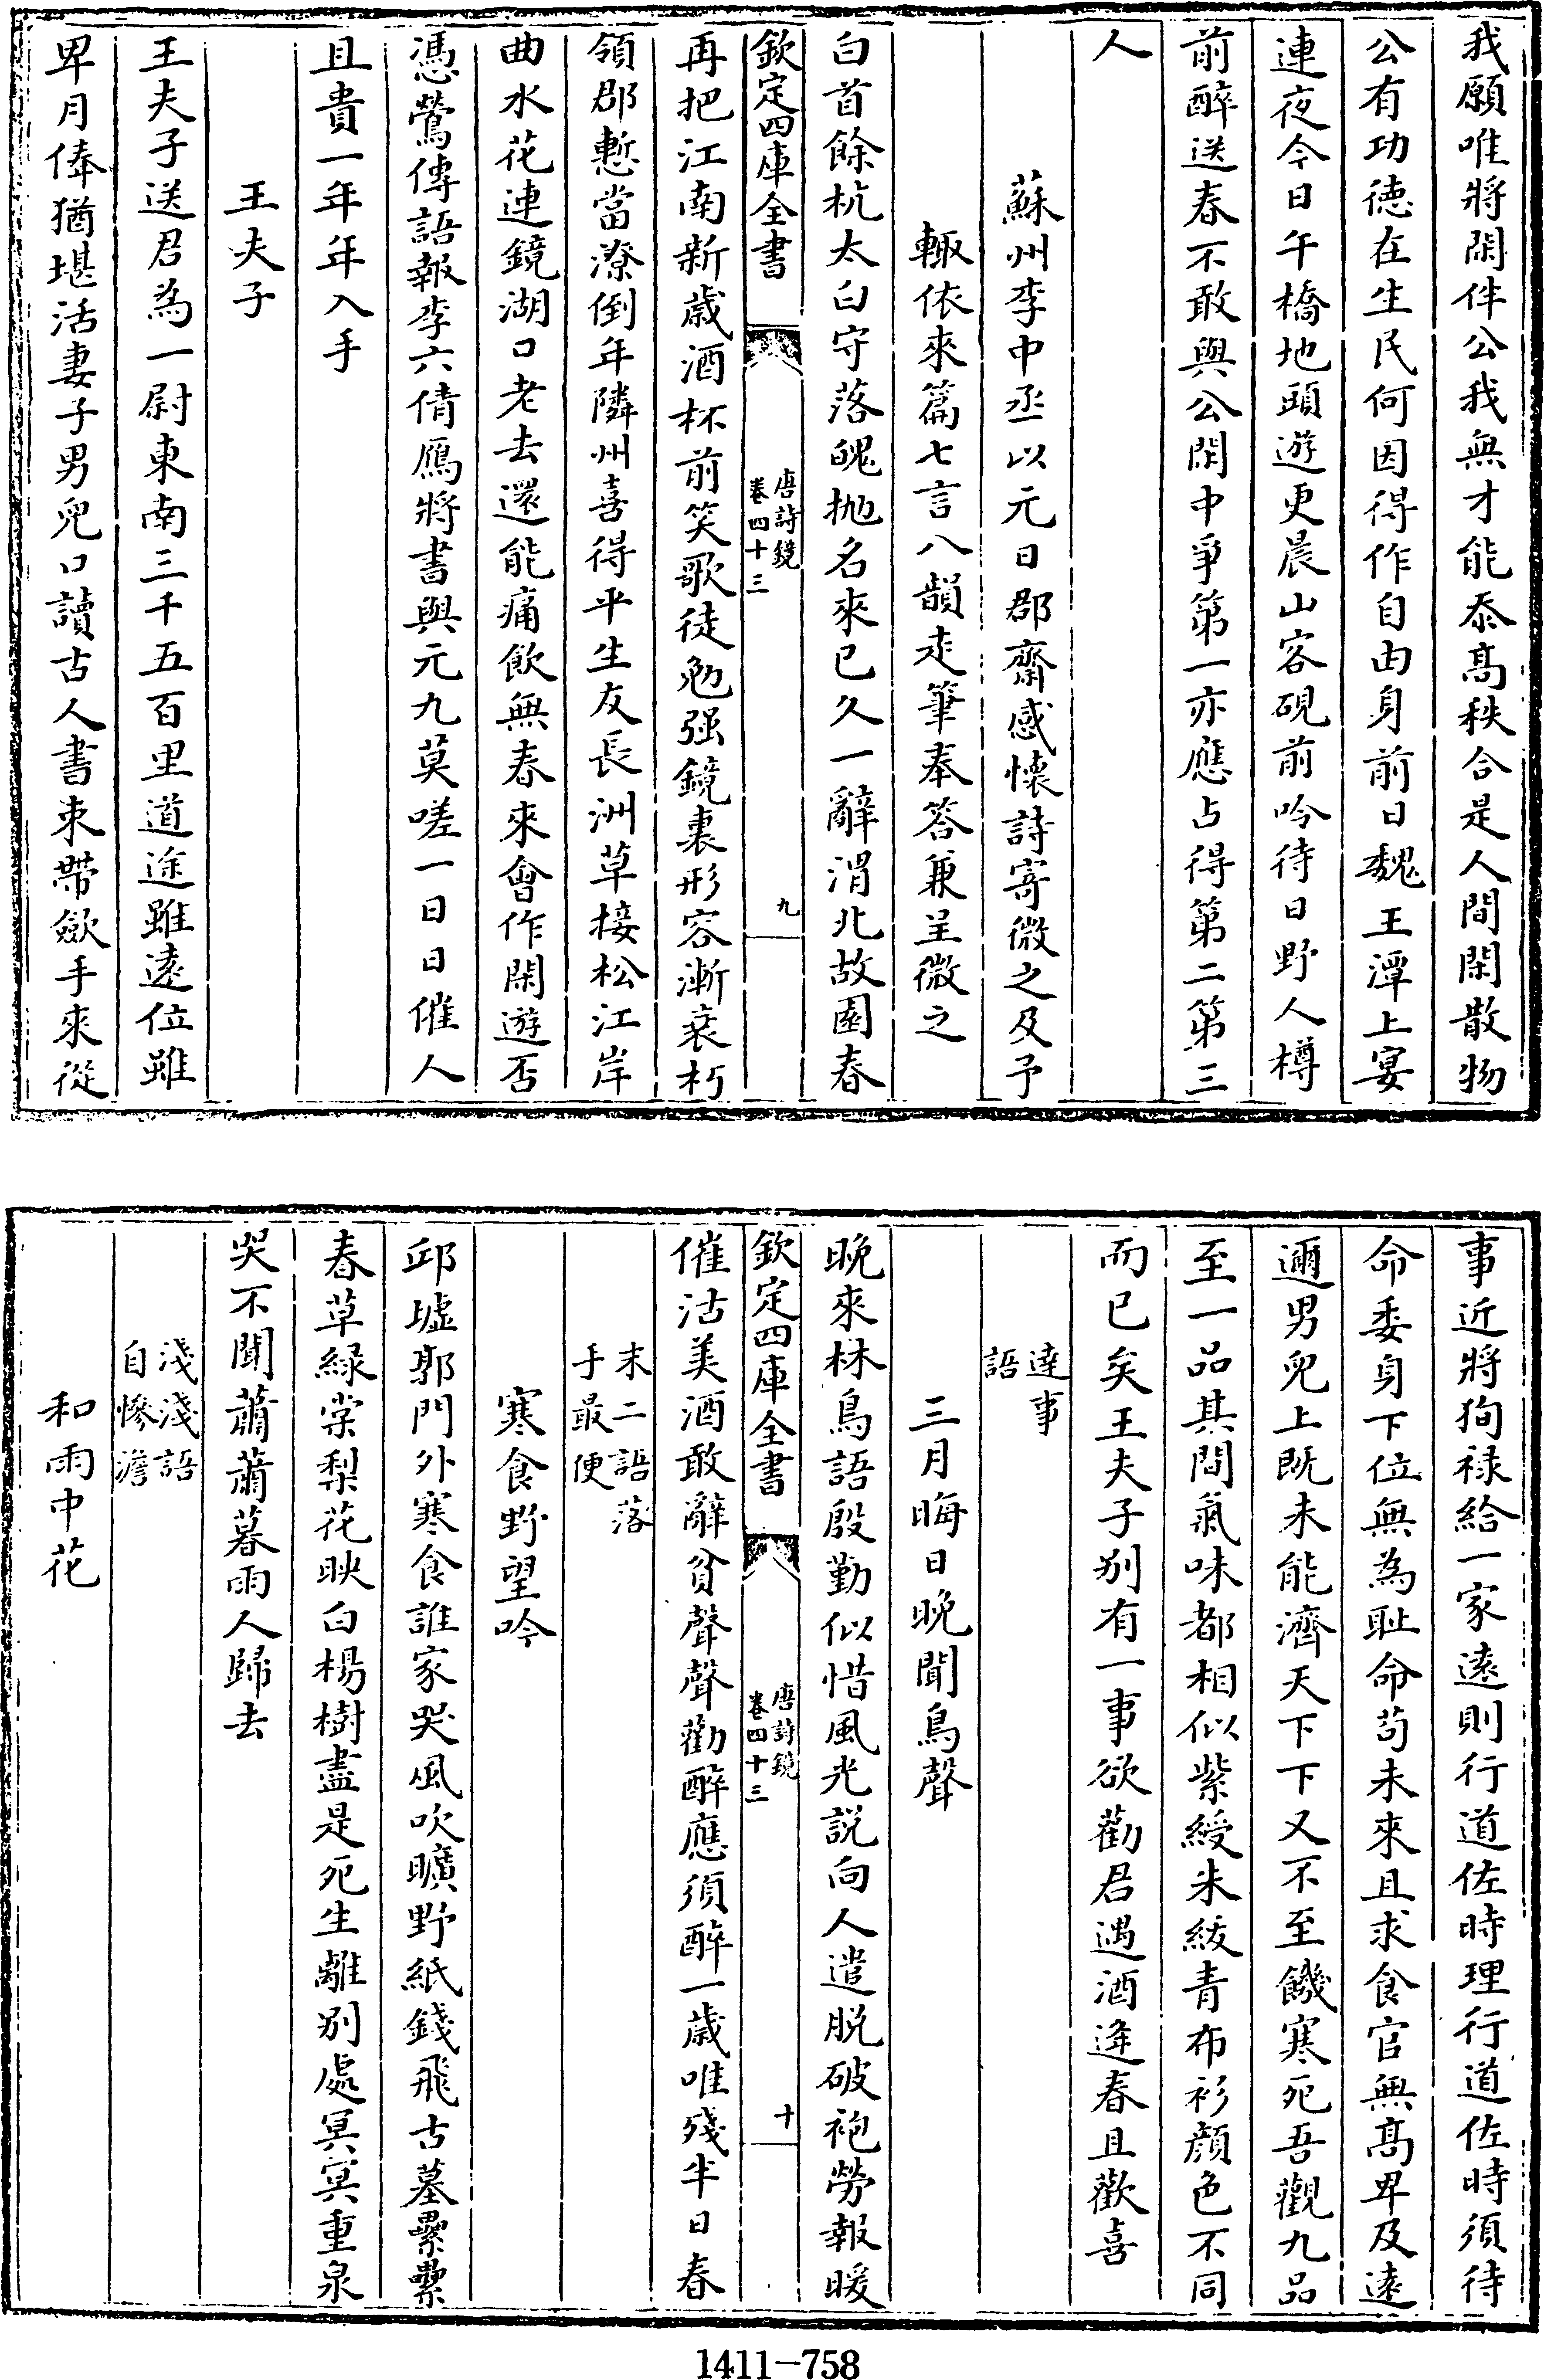 我願唯將閑伴公我無才能忝髙秩合是人間閑散物
公有功徳在生民何因得作自由身前日魏王潭上宴
連夜今日午橋地頭遊更晨山客硯前吟待日野人樽
前醉送春不敢與公閑中爭第一亦應占得第二第三
人
蘇州李中丞以元日郡齋感懷詩寄微之及予
輙依來篇七言八韻走筆奉答兼呈微之
白首餘杭太白守落魄抛名來已久一辭渭北故園春
欽定四庫全書
唐詩鏡
卷四十三
九
再把江南新歲酒杯前笑歌徒勉强鏡裏形容漸衰朽
領郡慙當潦倒年隣州喜得平生友長洲草接松江岸
曲水花連鏡湖口老去還能痛飲無春來會作閑遊否
憑鶯傳語報李六倩鴈將書與元九莫嗟一日日催人
且貴一年年入手
王夫子
王夫子送君為一尉東南三千五百里道途雖逺位雖
卑月俸猶堪活妻子男兒口讀古人書束帶歛手來從
事近將狥禄給一家逺則行道佐時理行道佐時須待
命委身下位無為耻命苟未來且求食官無髙卑及逺
邇男兒上既未能濟天下下又不至饑寒死吾觀九品
至一品其間氣味都相似紫綬朱紱青布衫顔色不同
而已矣王夫子别有一事欲勸君遇酒逢春且歡喜
達事
語
三月晦日晚聞鳥聲
晚來林鳥語殷勤似惜風光説向人遣脱破袍勞報暖
欽定四庫全書
唐詩鏡
卷四十三
十
催沽美酒敢辭貧聲聲勸醉應須醉一歲唯殘半日春
末二語落
手最便
寒食野望吟
邱墟郭門外寒食誰家哭風吹曠野紙錢飛古墓纍纍
春草緑棠梨花映白楊樹盡是死生離别處冥冥重泉
哭不聞蕭蕭暮雨人歸去
淺淺語
自慘澹
和雨中花
1411-758